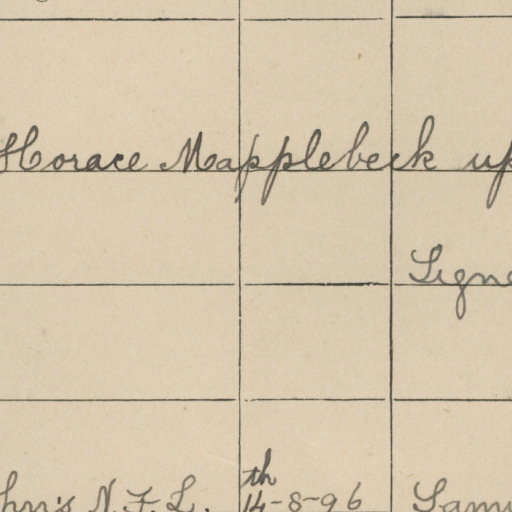 Horace Mapplebeck up
Signe
hn's N.F.L. 14th-8-96 Samu